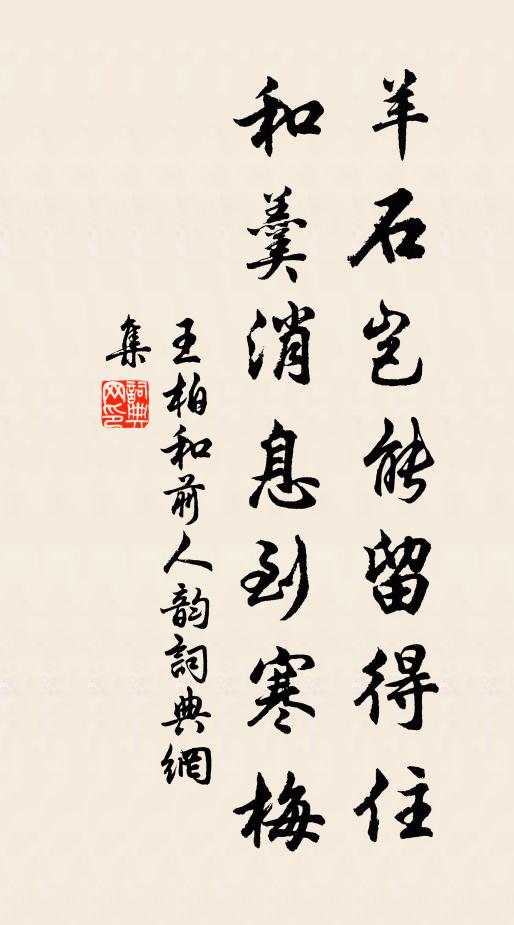 羊石豈能留得住
和羹消息到寒梅
王柏和前人韵詞典網
集
詞典
网印